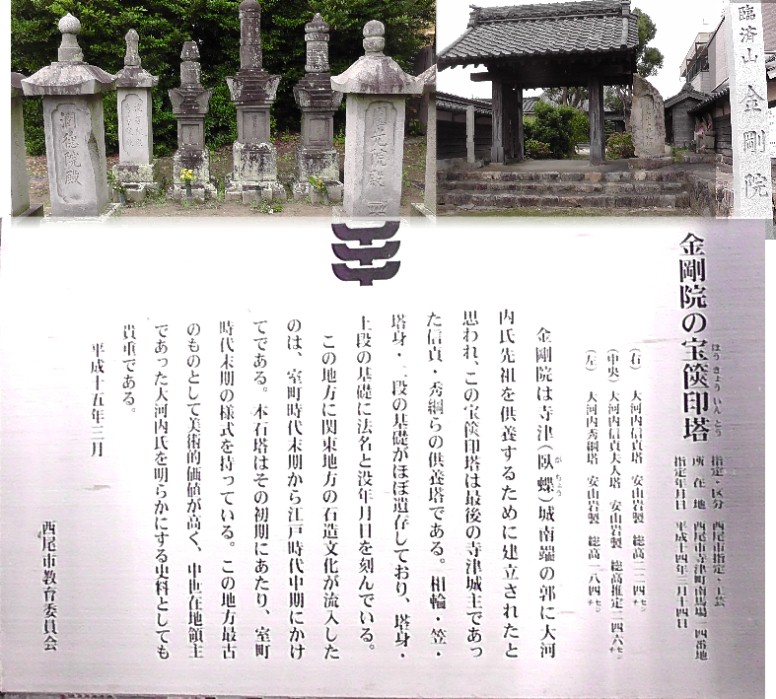 潤徳院殿
臨済山 金剛院
金剛院の宝篋印塔
ほうきょういんとう
指定・区分 西尾市指定・工芸
所在地 西尾市寺津町南馬場一四番地
指定年月日 平成十四年三月十四日
(右) 大河内信貞塔 安山岩製 総高二二四㌢
(中央) 大河内信貞夫人塔 安山岩製 総高推定二四六㌢
(左) 大河内秀綱塔 安山岩製 総高一八四㌢
金剛院は寺津(臥蝶)城南端の郭に大河
がちょう
内氏先祖を供養するために建立されたと
思われ、この宝篋印塔は最後の寺津城主であっ
た信貞・秀綱らの供養塔である。相輪・笠・
塔身・二段の基礎がほぼ遺存しており、塔身・
上段の基礎に法名と没年月日を刻んでいる。
この地方に関東地方の石造文化が流入した
のは、室町時代末期から江戸時代中期にかけ
てである。本石塔はその初期にあたり、室町
時代末期の様式を持っている。この地方最古
のものとして美術的価値が高く、中世在地領主
であった大河内氏を明らかにする史料としても
貴重である。
平成十五年三月
西尾市教育委員会